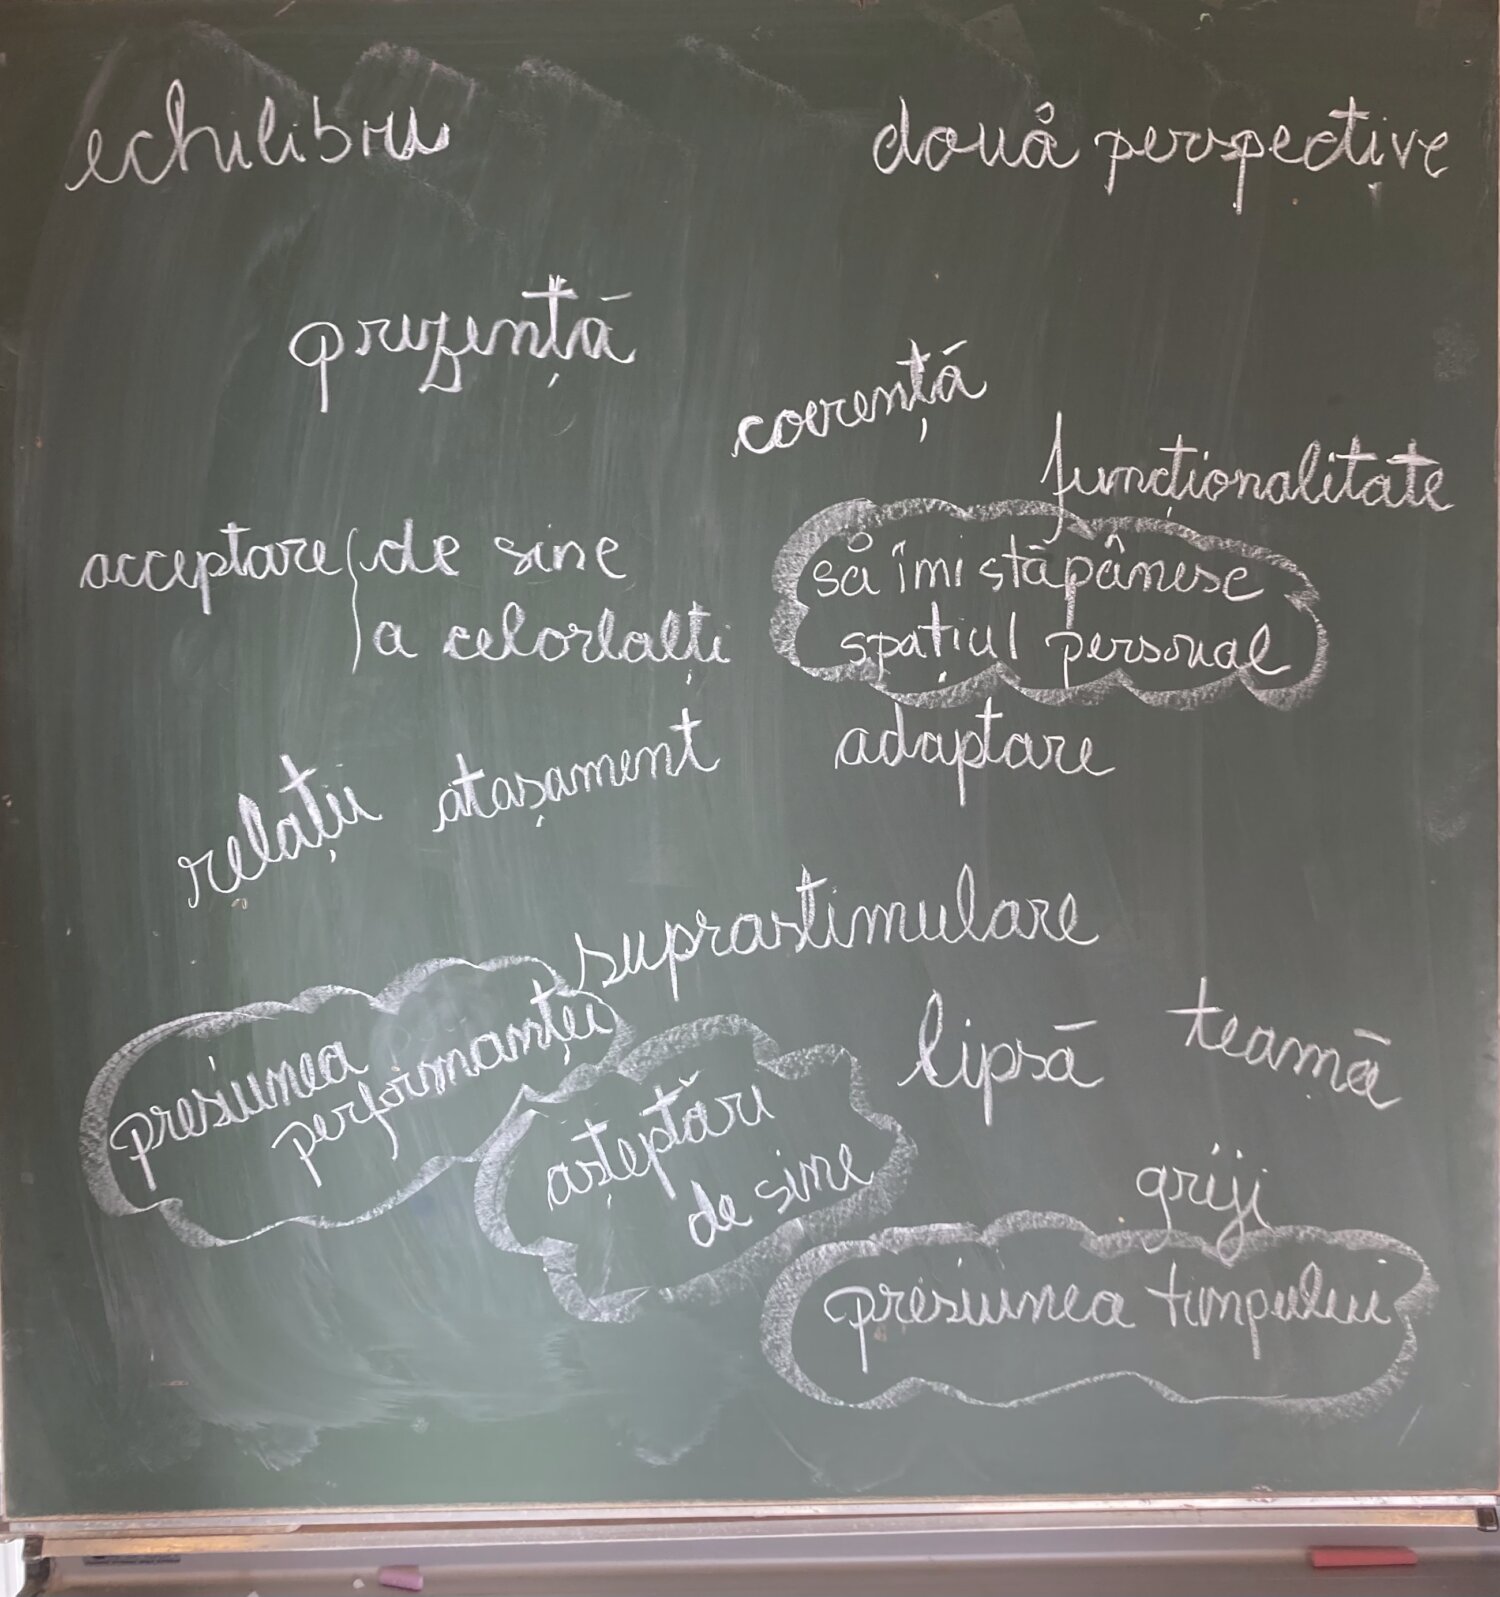 echilibru
două perspective
prezență
coerență
funcționalitate
acceptare de sine
a celorlalți
să îmi stăpânesc
spațiul personal
relații atașament
adaptare
suprastimulare
presiunea
performanței
lipsă
teamă
așteptări
de sine
griji
presiunea timpului